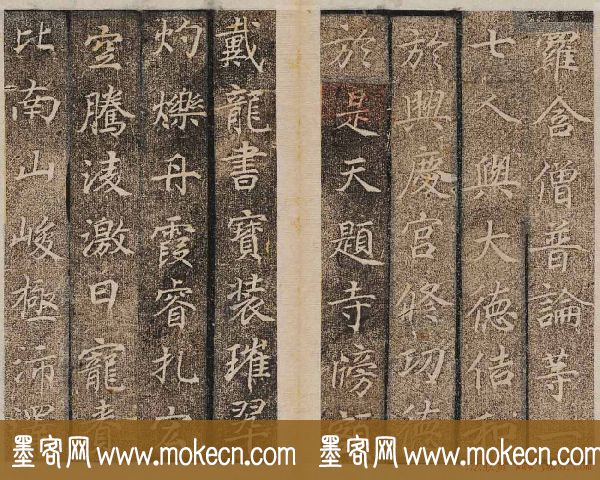 羅含僧普論等一
七人與大德佶和
於興慶宮修功德
於是天題寺牓額
戴龍書寶裝璀翠
灼爍丹霞睿扎宏
空騰淩激日寵賚
比南山峻極沛澤
墨客网 www.mokecn.com
墨客网 www.mokecn.com